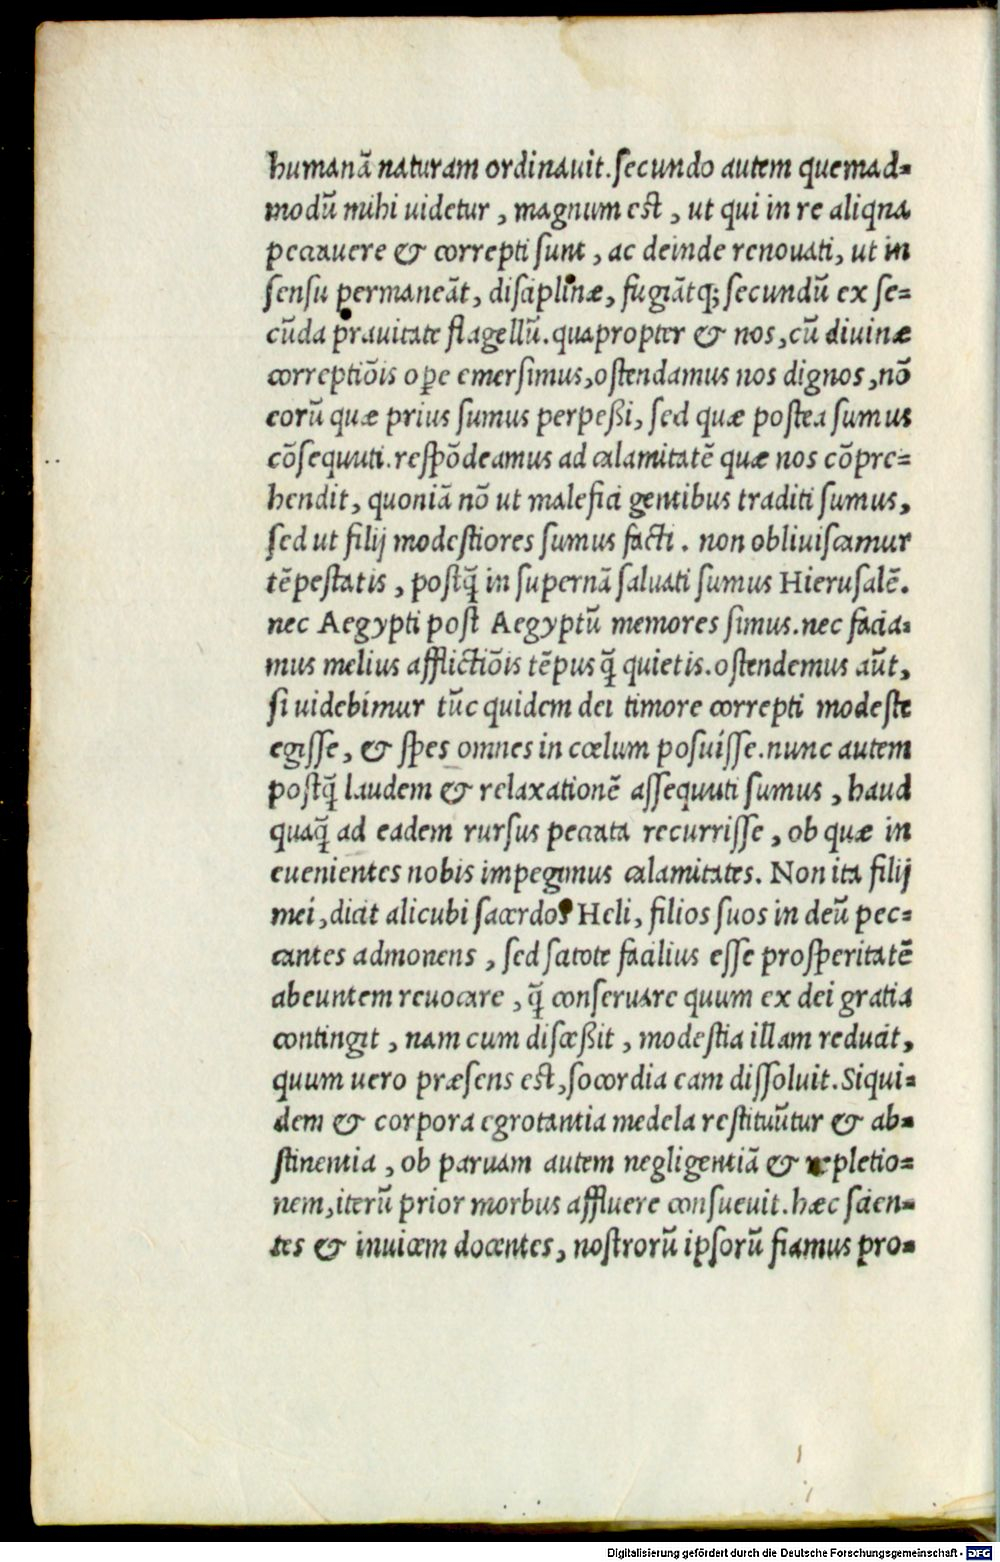 humanã naturam ordinauit. secundo autem quemad=
modũ mihi uidetur, magnum est, ut qui in re aliqna
peccauere & correpti sunt, ac deinde renouati, ut in
sensu permaneãt, disciplinæ, fugiãtq; secundũ ex se=
cũda prauitate flagellũ. quapropter & nos, cũ diuinæ
correptiõis ope emersimus, ostendamus nos dignos, nõ
eorũ quæ prius sumus perpeßi, sed quæ postea sumus
cõsequuti. respõdeamus ad calamitatẽ quæ nos cõpre=
hendit, quoniã nõ ut malefici gentibus traditi sumus,
sed ut filij modestiores sumus facti. non obliuiscamur
tẽpestatis, postq̃ in supernã saluati sumus Hierusalẽ.
nec Aegypti post Aegyptũ memores simus. nec facia=
mus melius afflictiõis tẽpus q̃ quietis. ostendemus aũt,
si uidebimur tũc quidem dei timore correpti modeste
egisse, & spes omnes in cœlum posuisse. nunc autem
postq̃ laudem & relaxationẽ assequuti sumus, haud
quaq̃ ad eadem rursus peccata recurrisse, ob quæ in
euenientes nobis impegimus calamitates. Non ita filij
mei, dicit alicubi sacerdos Heli, filios suos in deũ pec=
cantes admonens, sed scitote facilius esse prosperitatẽ
abeuntem reuocare, q̃ conseruare quum ex dei gratia
contingit, nam cum disceßit, modestia illam reducit,
quum uero præsens est, socordia eam dissoluit. Siqui=
dem & corpora egrotantia medela restituũtur & ab=
stinentia, ob paruam autem negligentiã & repletio=
nem, iterũ prior morbus affluere consueuit. hæc scien=
tes & inuicem docentes, nostrorũ ipsorũ fiamus pro=
Digitalisierung gefördert durch die Deutsche Forschungsgemeinschaft - DFG